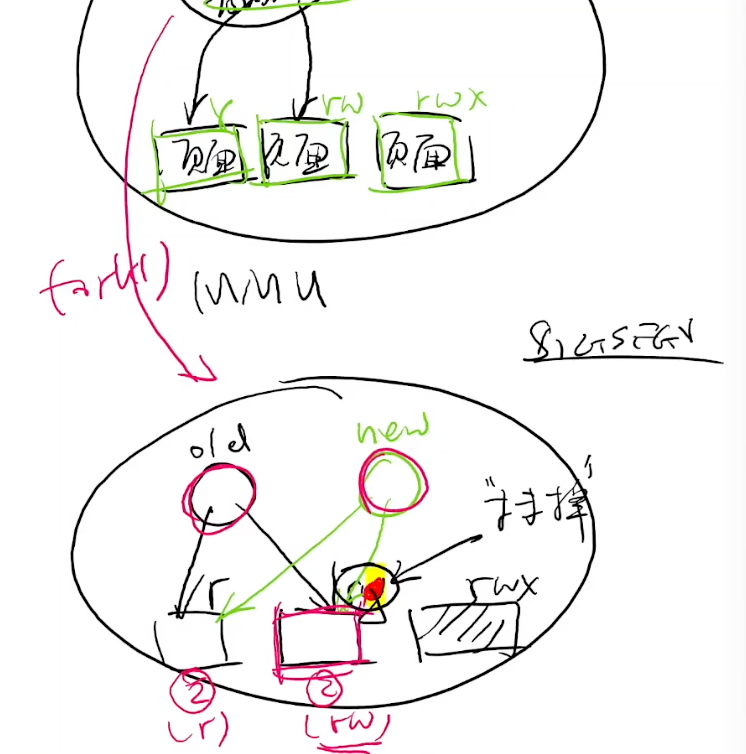 r rw rwx
页面 页面 页面
fork()
MMU
SIGSEGV
old new
r rwx
② ②
(r) (rw)